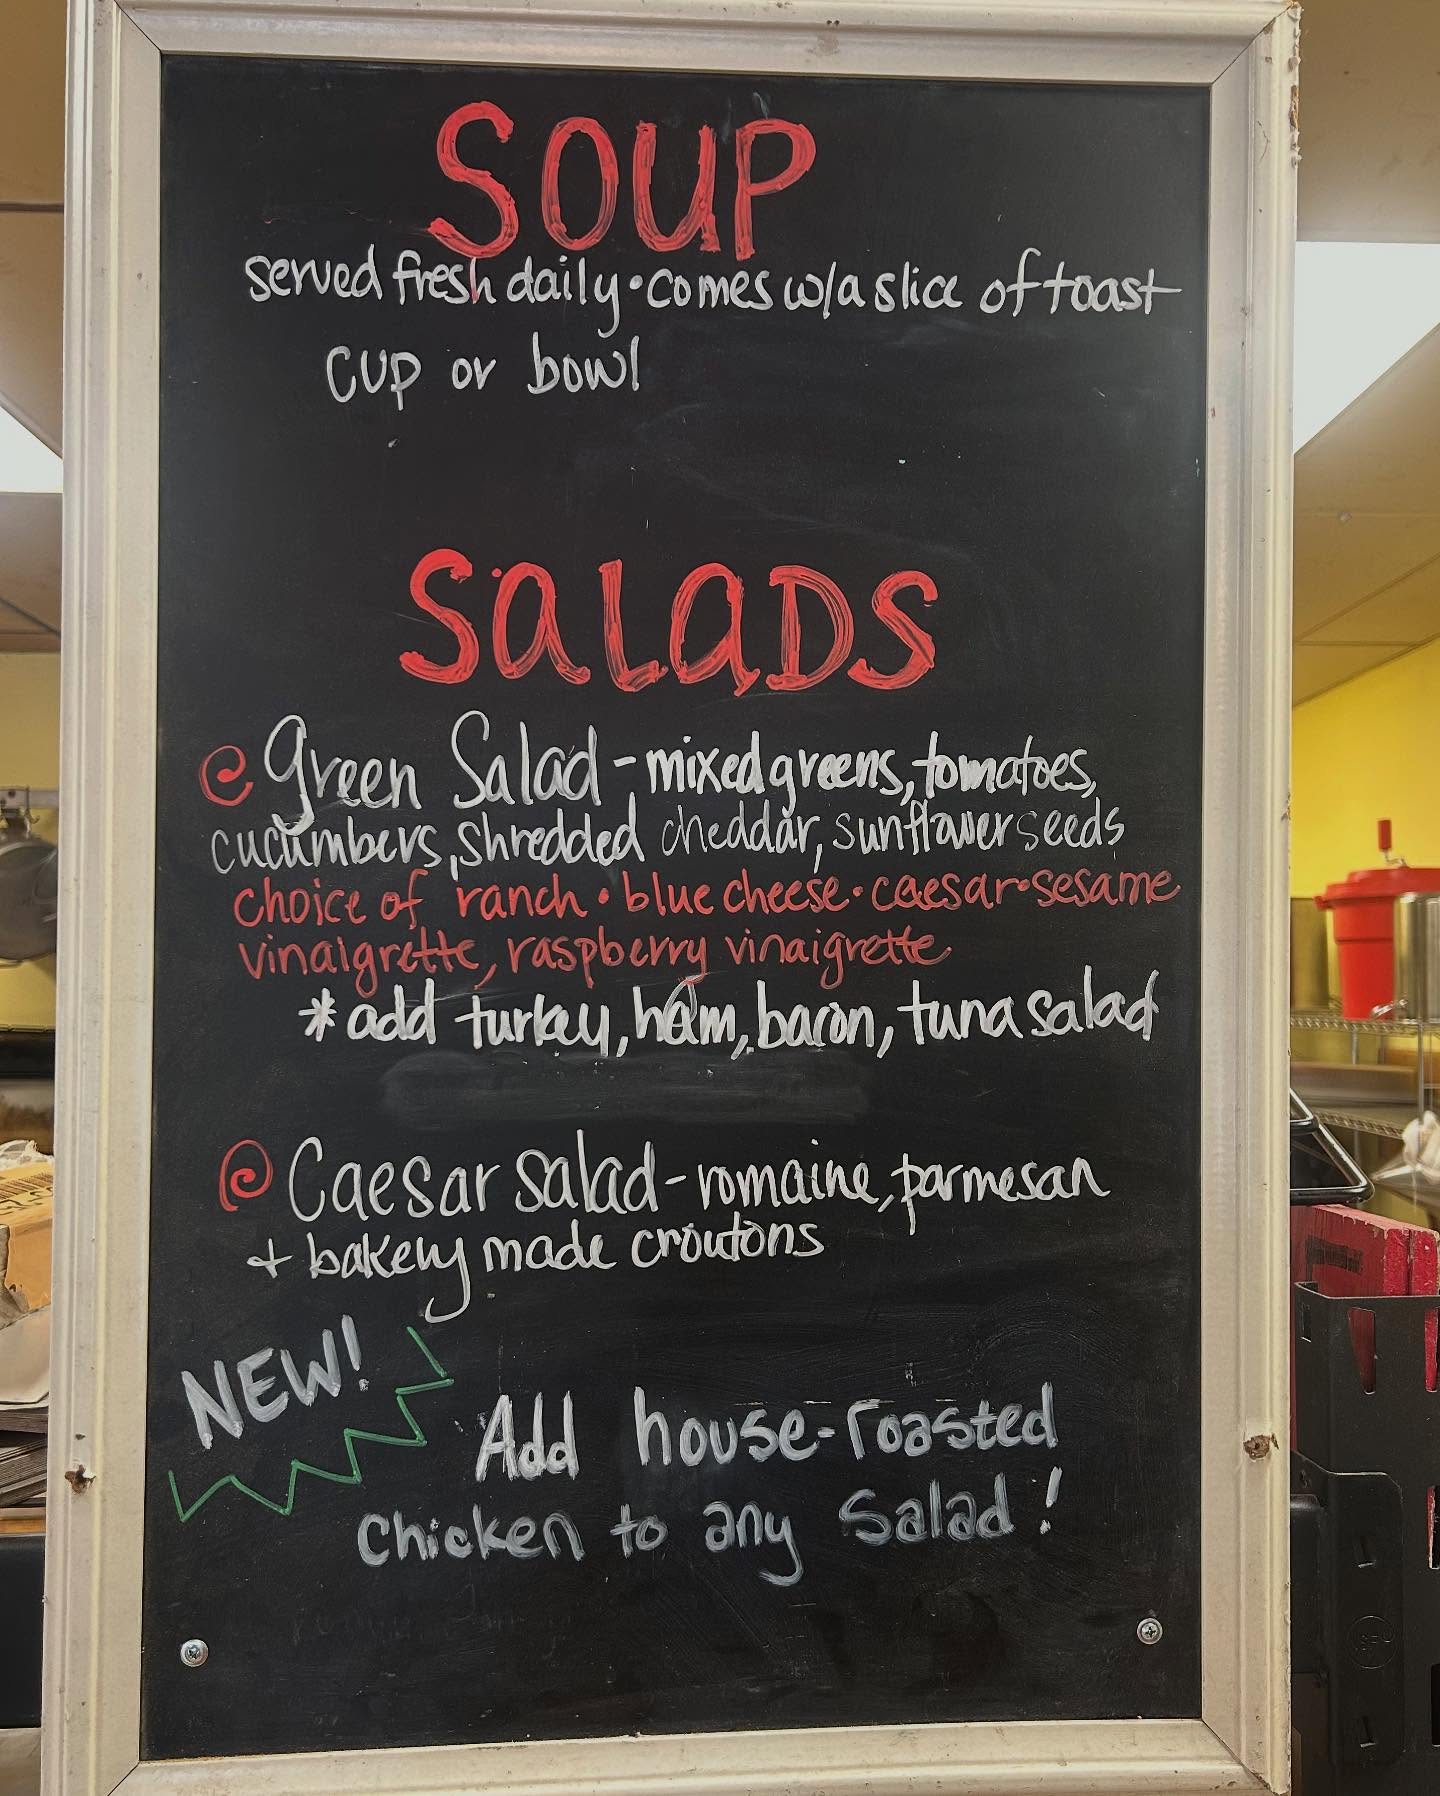 SOUP
served fresh daily • comes w/a slice of toast
cup or bowl
SALADS
Green Salad - mixed greens, tomatoes,
cucumbers, shredded cheddar, sunflower seeds
choice of ranch • blue cheese • caesar • sesame
vinaigrette, raspberry vinaigrette
* add turkey, ham, bacon, tuna salad
Caesar salad - romaine, parmesan
+ bakery made croutons
NEW!
Add house-roasted
Chicken to any Salad!